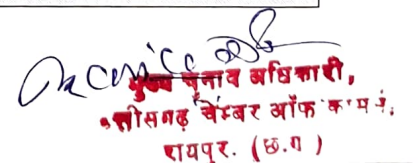 मुख्य चुनाव अधिकारी,
छत्तीसगढ़ चेम्बर ऑफ
रायपुर. (छ.ग)